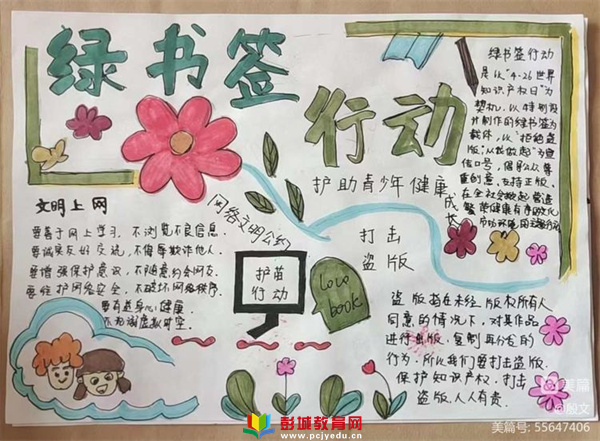 绿书签
行动
护助青少年健康
成长
绿书签行动
是以"4·26世界
知识产权日"为
契机,以特别设
计制作的绿书签为
载体,以"拒绝盗
版,从我做起"为宣
传口号,倡导公众尊
重创意、支持正版,
在全社会
繁荣健康有序的文化
文明上网
要善于网上学习,不浏览不良信息.
要诚实友好交流,不侮辱欺诈他人.
要增强保护意识,不随意约会网友.
要维护网络安全,不破坏网络秩序.
要有益身心健康.
不沉溺虚拟时空.
网络文明公约
护苗
行动
Love
book
打击
盗版
盗版指在未经版权所有人
同意的情况下,对其作品
进行出版,复制再分发的
行为,所以我们要打击盗版.
保护知识产权,打击
盗版,人人有责.
彭城教育网
www.pcjyedu.cn
美篇
@殷文
美篇号:55647406